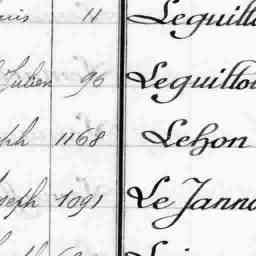 uis 11 Leguillo
Julien 96 Leguillou
eph 1168 Lehon
oseph 1091 Le Janno